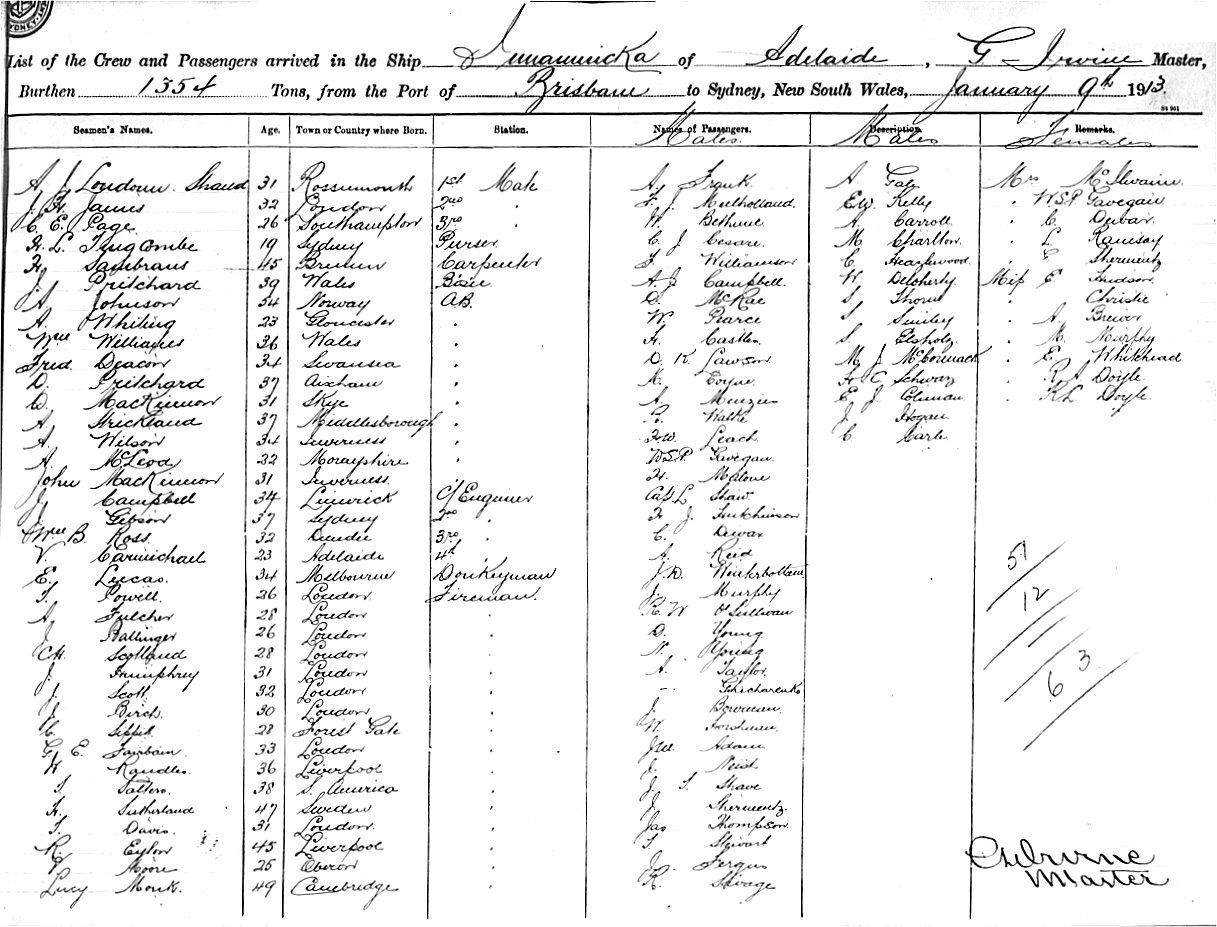 SYDNEY
List of the Crew and Passengers arrived in the Ship Innamincka of Adelaide, G Irvine Master,
Burthen 1354 Tons, from the Port of Brisbane to Sydney, New South Wales, January 9th 1913.
Seamen's Names. Age. Town or Country where Born. Station. Names of Passengers. Description. Remarks.
Males. Males Females
A. J. Loudoun Shand 31 Rossumouth 1st Mate A. Frank. A Gale Mrs McIlwaine
J. H. James 32 London 2nd " F. J. Mulholland. E.W. Kelly " W.S.P. Gavegan
C. E. Page 26 Southampton 3rd " W. Bethune A Carroll " C. Dewar
H. L. Tingcombe 19 Sydney Purser C. J. Cesare. M. Charlton. " L. Ramsay
H. 45 Bremen Carpenter F. Williamson C. Heazlewood. " Shermentz
Pritchard 39 Wales A. J. Campbell. W. Delcherty Miss E Hudson.
A. Johnson 54 Norway A.B. D. McRae S. Thorne " Christie
A. Whiting 23 Gloucester " W. Pearce S. Smiley " A. Brewer
Wm Williams 36 Wales " H. Castles S. Elsholz " M. Murphy
Fred. Deacon 34 Swansea " D. R. Lawson M. J. McCormack " E. Whitehead
D. Pritchard 37 " K. Coyne. H C Schwarz " R. A. Doyle
D. MacKinnon 31 Skye " A. Menzies E. J. Coleman " K L Doyle
A. Strickland 37 Middlesborough " J. Hogan
A. Wilson 34 Inverness " H.W. Leach C Carle
A. McLeod 22 Morayshire " W.S.P. Gavegan
John MacKinnon 31 Inverness. H. Malone
J. Campbell 34 Limerick C/Engineer Capt L Shaw.
J. Gibson 37 Sydney 2nd " H J. Hutchinson
Wm B. Ross 32 Dundee 3rd " C. Dewar
V. Carmichael 23 Adelaide 4th " A. Reid
E. Lucas. 34 Melbourne Donkeyman J.D. Winterbottom
Powell. 26 London Fireman. J. Murphy
A. Fulcher 28 London " R. W O'Sullivan
J. Ballinger 26 London " D. Young
C.H. Scotland 28 London " N. Young
J. Humphrey 31 London " A. Taylor
J. Scott 32 London " -
J. Birch. 30 London " J. Bowman.
28 Forest Gate " W. Fordham.
G. E. Fairbairn. 33 London " Jno Adam
W Randles 36 Liverpool " J.
38 S. America " J. S. Shave
H. Sutherland 47 Sweden " J. Shermentz.
Davis. 31 London. " Jas Thompson
R. 45 Liverpool " Stewart
Moore 25 Oberon " J. Fergus
Lucy Monk. 49 Cambridge " R. Savage
51
12
63
G Irvine
Master